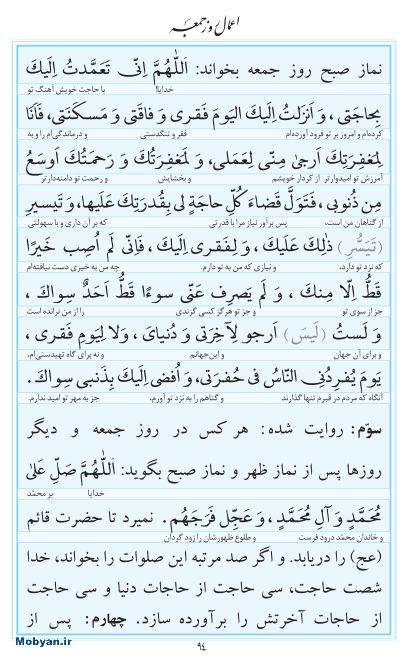 اعمال روز جمعه
نماز صبح روز جمعه بخواند: اَللّٰهُمَّ اِنّی تَعَمَّدتُ اِلَیكَ
خدایا! با حاجت خویش آهنگ تو
بِحاجَتی، وَ اَنزَلتُ اِلَیكَ الیَومَ فَقری وَ فاقَتی وَ مَسكَنَتی، فَاَنَا
كرده‌ام و امروز بر تو فرود آورده‌ام فقر و تنگدستی و درماندگی‌ام را و به
لِمَغفِرَتِكَ اَرجیٰ مِنّی لِعَمَلی، وَ لَمَغفِرَتُكَ وَ رَحمَتُكَ اَوسَعُ
آمرزش تو امیدوارتر از كردار خویشم و بخشایش و رحمت تو دامنه‌دارتر
مِن ذُنوبی، فَتَوَلَّ قَضاءَ كُلِّ حاجَةٍ لی بِقُدرَتِكَ عَلَیها، وَ تَیسیرِ
از گناهان من است، پس برآور نیاز مرا با قدرتی كه بر آن داری و با سهولتی
(تَیَسُّرِ) ذٰلِكَ عَلَیكَ، وَ لِفَقری اِلَیكَ، فَاِنّی لَم اُصِب خَیرًا
كه نزد تو دارد، و نیازی كه من به تو دارم. چه من به خیری دست نیافته‌ام
قَطُّ اِلّا مِنكَ، وَ لَم یَصرِف عَنّی سوءًا قَطُّ اَحَدٌ سِواكَ،
جز از سوی تو و جز تو هرگز كسی گزندی را از من نرانده است
وَ لَستُ (لَیسَ) اَرجو لِآخِرَتی وَ دُنیایَ، وَلا لِیَومِ فَقری،
و برای آن جهان و این‌جهانم و نه برای گاه تهیدستی‌ام،
یَومَ یُفرِدُنِی النّاسُ فی حُفرَتی، وَ اُفضی اِلَیكَ بِذَنبی سِواكَ.
آنگاه كه مردم در قبرم تنها گذارند و گناهم را به نزد تو آورم، جز به مهر تو امید ندارم.
سوّم: روایت شده: هر كس در روز جمعه و دیگر
روزها پس از نماز ظهر و نماز صبح بگوید: اَللّٰهُمَّ صَلِّ عَلیٰ
خدایا بر محمّد
مُحَمَّدٍ وَ آلِ مُحَمَّدٍ، وَ عَجِّل فَرَجَهُم. نمیرد تا حضرت قائم
و خاندان محمّد درود فرست و طلوع ظهورشان را زود گردان
(عج) را دریابد. و اگر صد مرتبه این صلوات را بخواند، خدا
شصت حاجت، سی حاجت از حاجات دنیا و سی حاجت
از حاجات آخرتش را برآورده سازد. چهارم: پس از
۹۴
Mobyan.ir